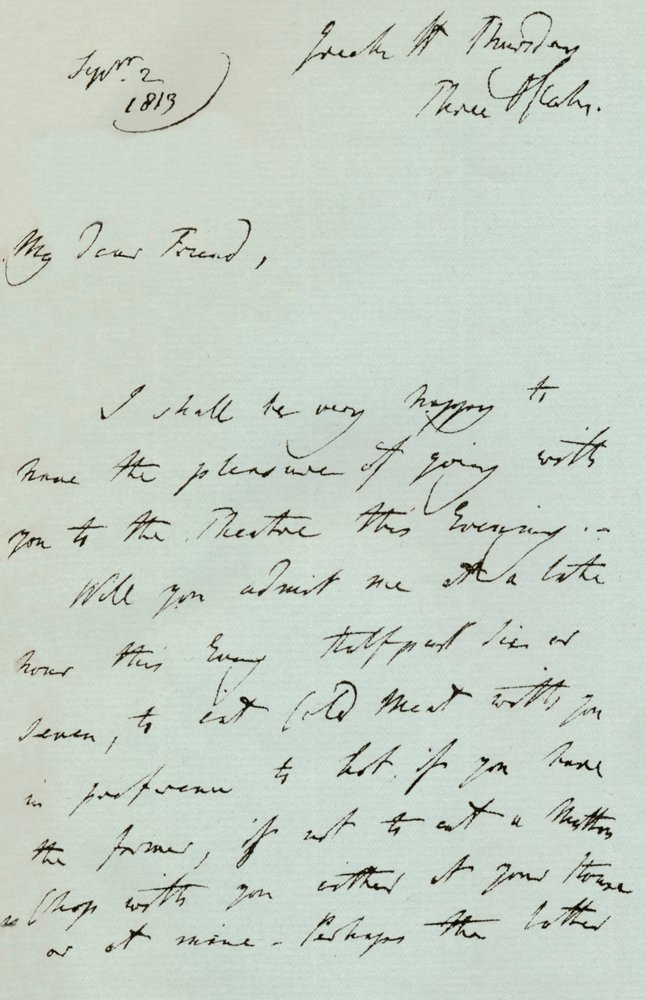 Sepr. 2
1813
Greek St Thursday
Three O'Clock.
My dear Friend,
I shall be very happy to
have the pleasure of going with
you to the Theatre this Evening.-
Will you admit me at a late
hour this Eveng Halfpast Six or
Seven, to eat Cold Meat with you
in preference to hot if you have
the former, if not to eat a Mutton
Chop with you either at your House
or at mine - Perhaps the latter